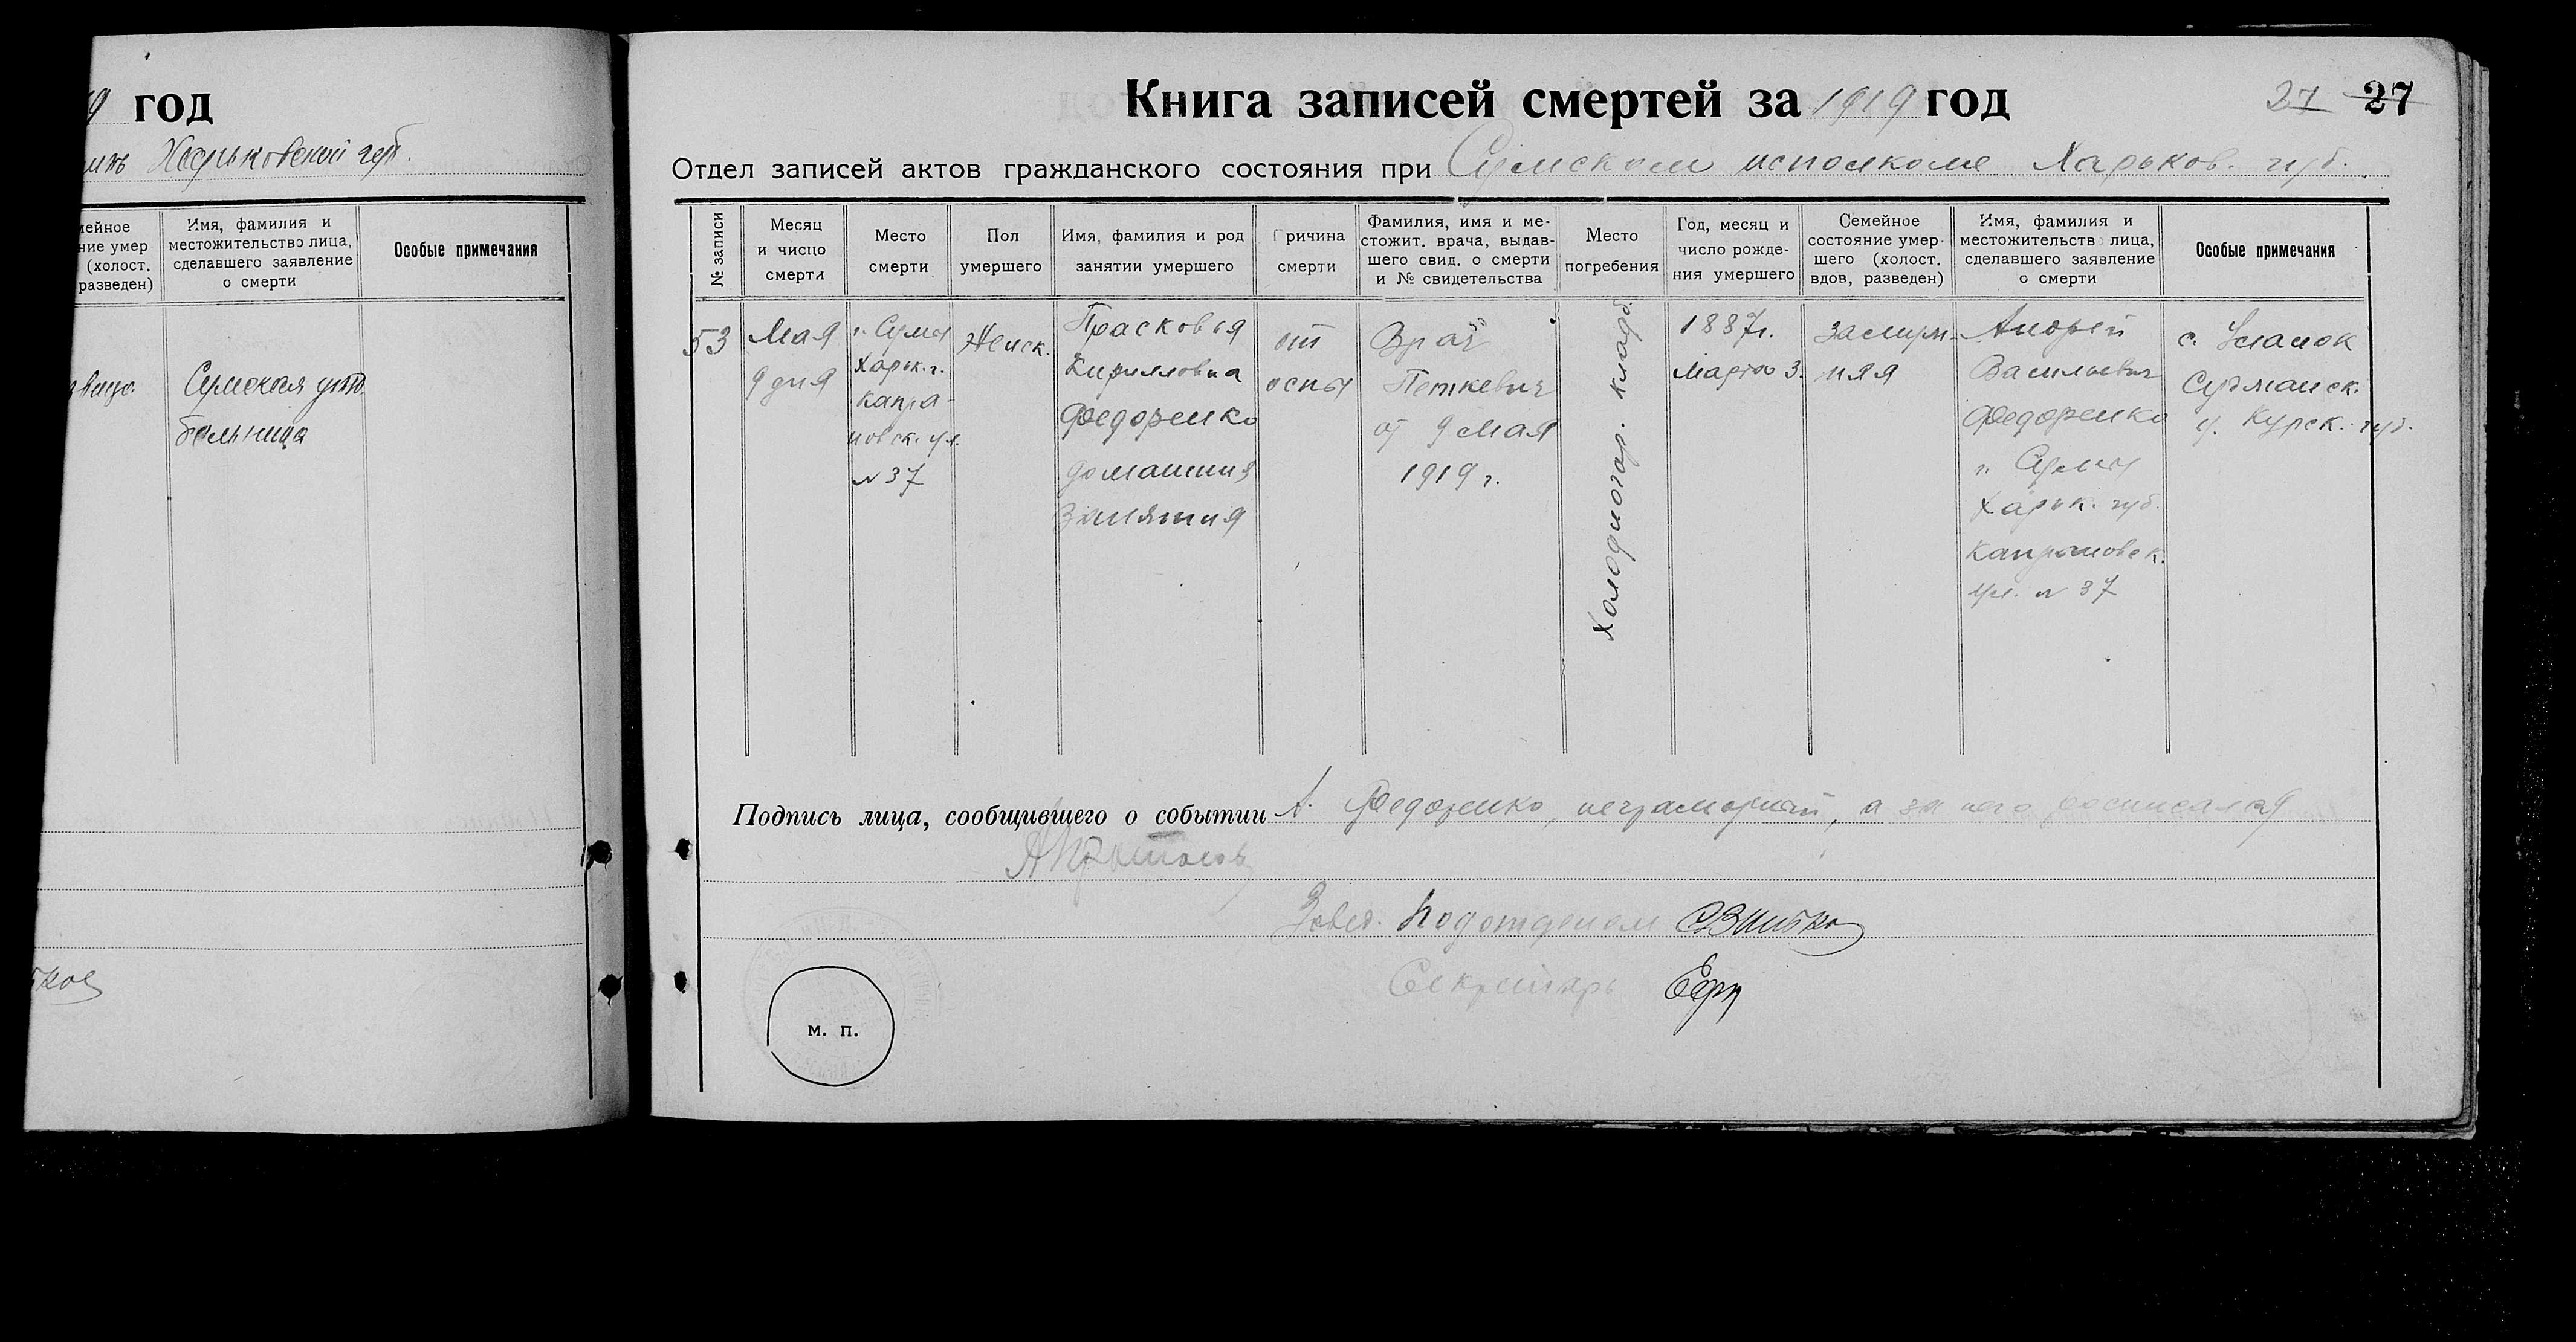 9 год
Харьковской губ.
мейное
ние умер
(холост.
разведен)
Имя, фамилия и
местожительство лица,
сделавшего заявление
о смерти
Особые примечания
Сумская
больница
Книга записей смертей за 1919 год
27 27
Отдел записей актов гражданского состояния при Сумском исполкоме Харьков. губ.
№ записи
Месяц
и число
смерти
Место
смерти
Пол
умершего
Имя, фамилия и род
занятии умершего
Причина
смерти
Фамилия, имя и ме-
стожит. врача, выдав-
шего свид. о смерти
и № свидетельства
Место
погребения
Год, месяц и
число рожде-
ния умершего
Семейное
состояние умер-
шего (холост.
вдов, разведен)
Имя, фамилия и
местожительство лица,
сделавшего заявление
о смерти
Особые примечания
53
Мая
9 дня
г. Сумы
Харьк. г.
Капра-
новск. ул.
№ 37
Женск.
Прасковья
Кирилловна
Федоренко
домашния
занятия
от
оспы
Врач
Петкевич
от 9 мая
1919 г.
Холодногор. кладб.
1887 г.
Марта 3.
замуж-
няя
Андрей
Васильевич
Федоренко
г. Сумы
Харьк. губ.
Капрановск.
ул. № 37
с. Уланок
Суджанск.
у. Курск. губ.
Подпись лица, сообщившего о событии А. Федоренко, неграмотный, а за него росписалая
Завед. Подотделом
Секретарь
м. п.